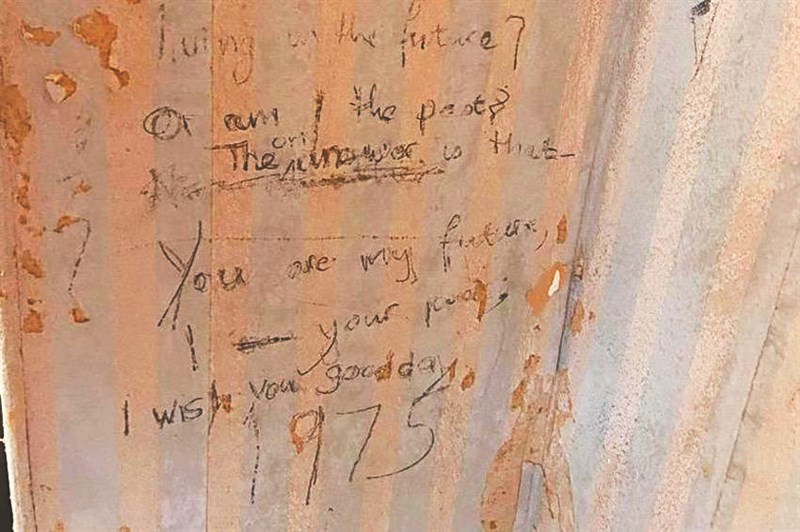 living in the future?
Or am I the past?
only
The answer is that
You are my future,
I — your past,
I wish you good day.
1975